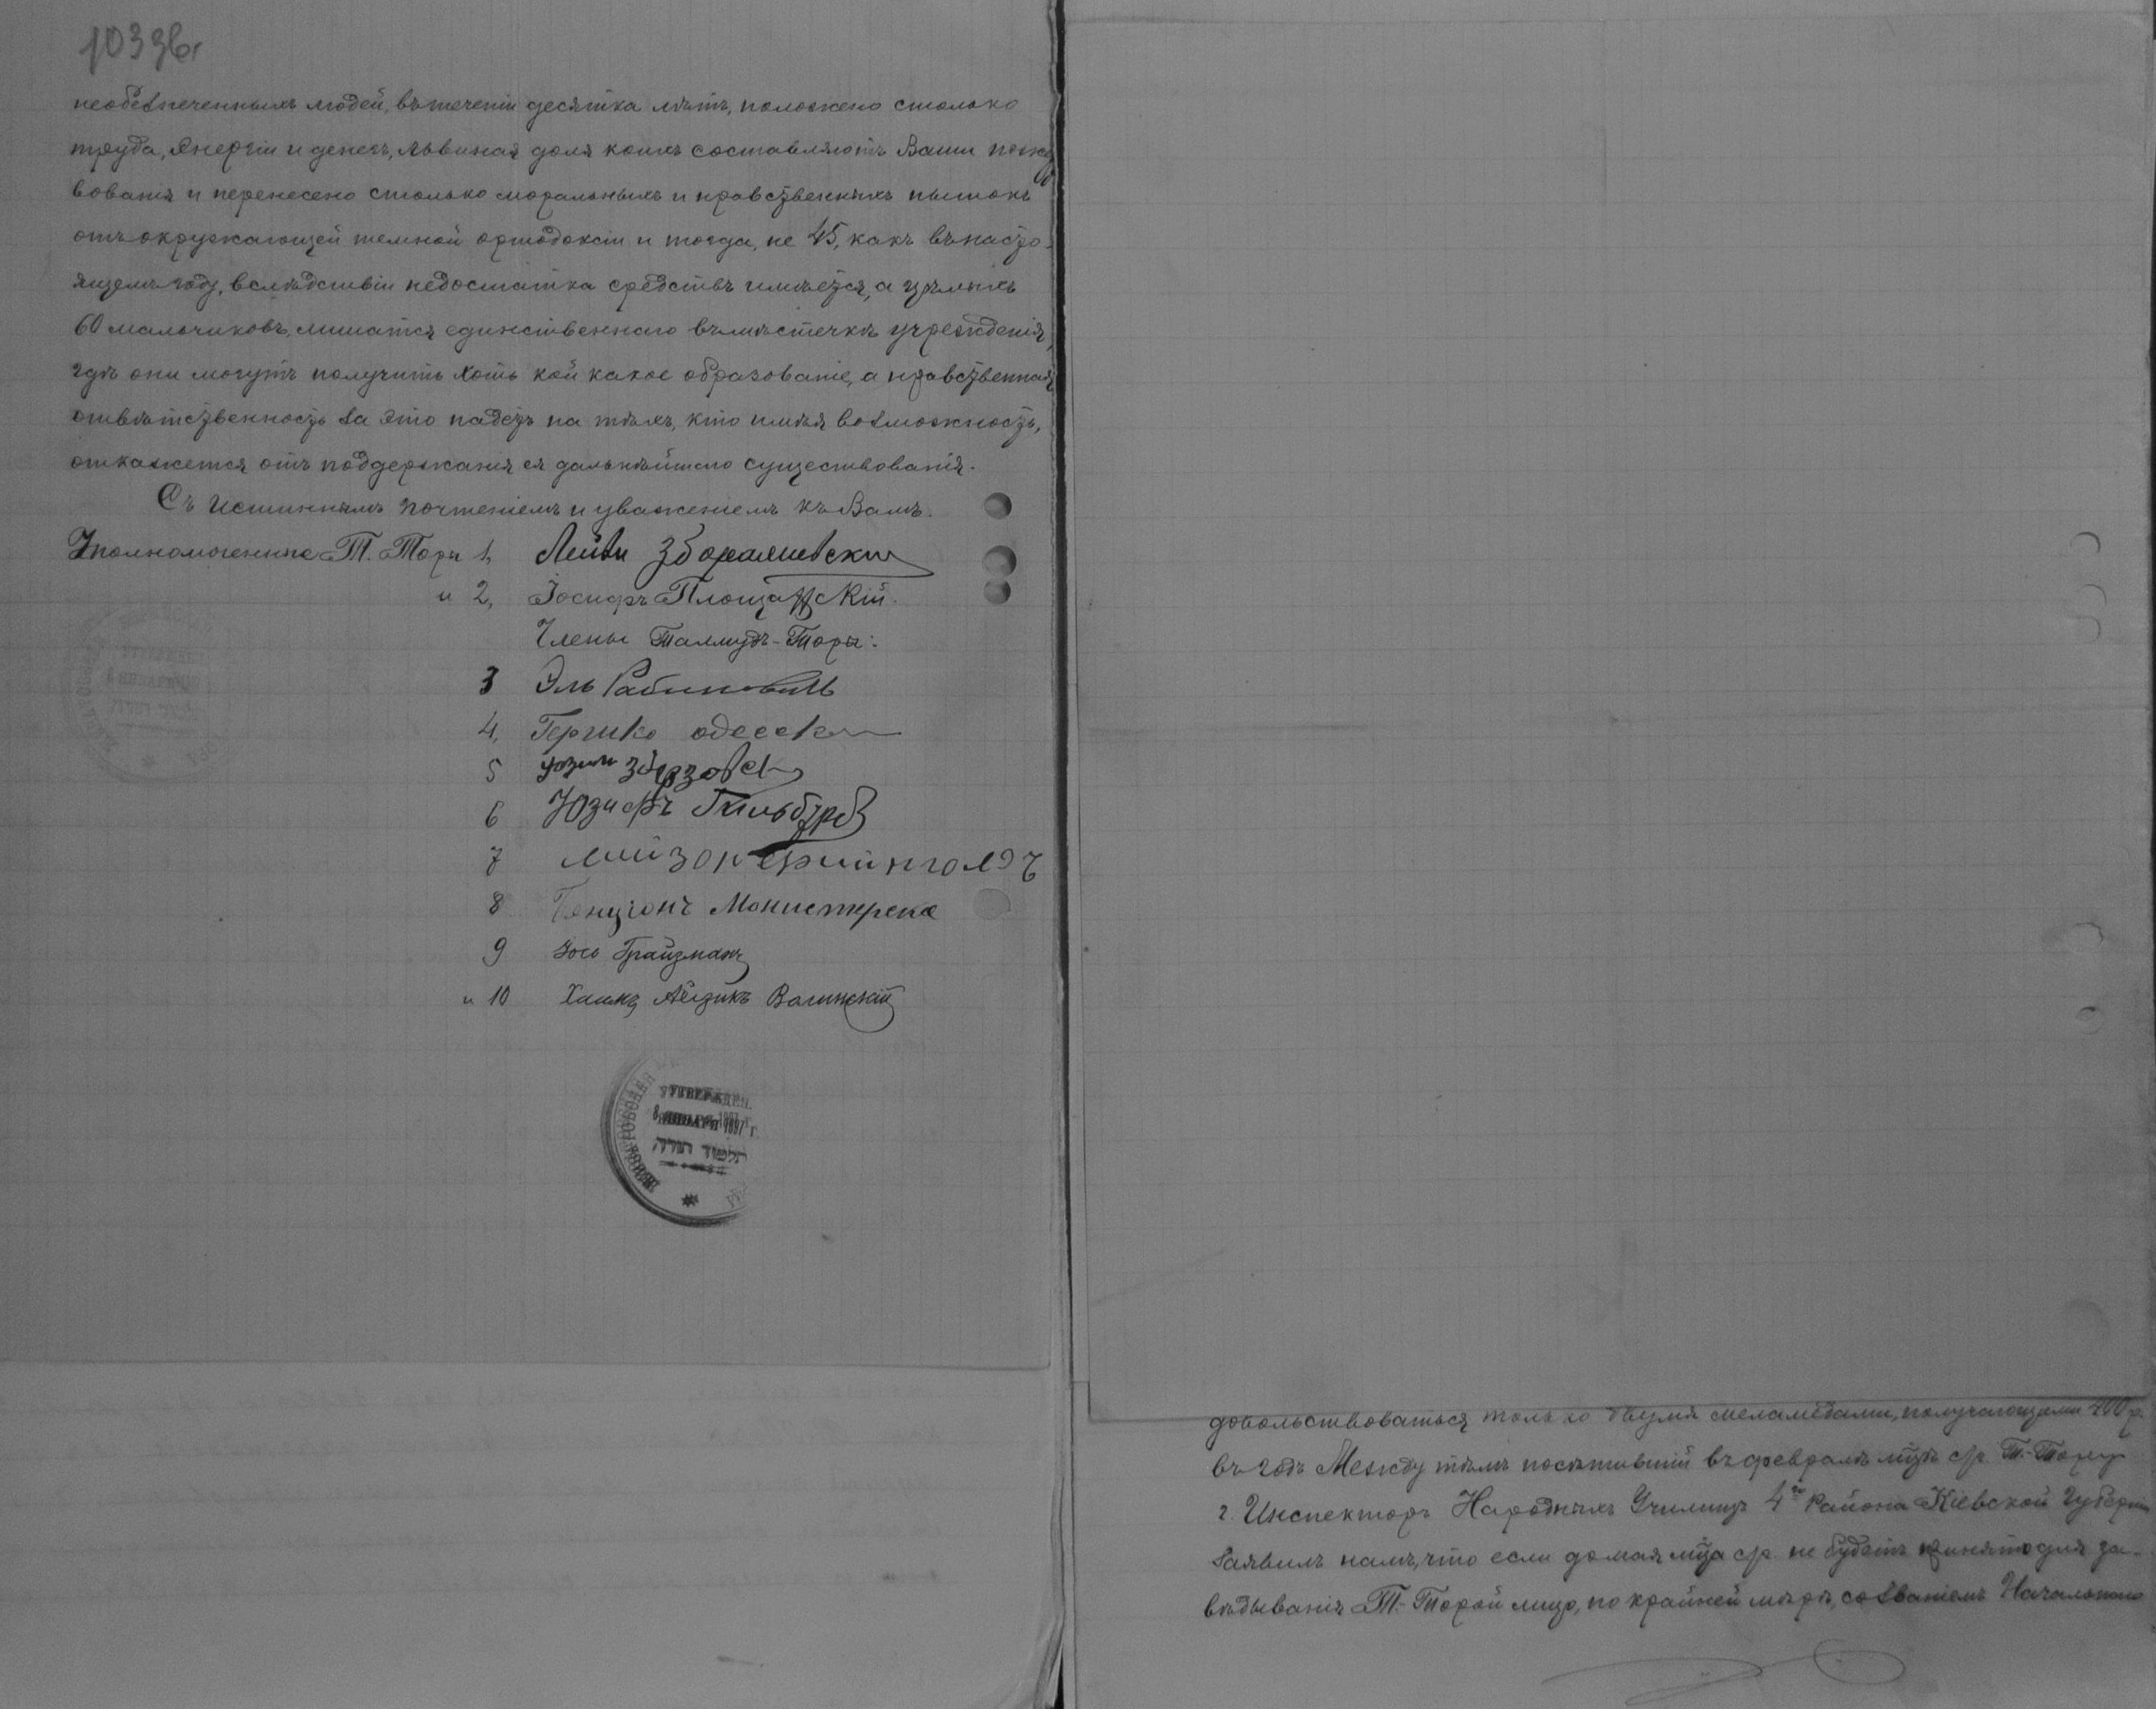 1033б.
необезпеченныхъ людей, въ теченіи десятка лѣтъ, положено столько
труда, энергіи и денегъ, львиная доля коихъ составляютъ Ваши пожерт
вованія и перенесено столько моральныхъ и нравственныхъ пытокъ
отъ окружающей темной ортодоксіи и тогда, не 45, какъ въ насто-
ящемъ году, вслѣдствіи недостатка средствъ имѣется, а цѣлыхъ
60 мальчиковъ, лишатся единственнаго въ мѣстечкѣ учрежденія,
гдѣ они могутъ получить хоть кой какое образованіе, а нравственная
отвѣтственность за это падетъ на тѣхъ, кто имѣя возможность,
откажется отъ поддержанія ея дальнѣйшаго существованія.
Съ истиннымъ почтеніемъ и уваженіемъ къ Вамъ.
Уполномоченные Т. Торы 1,
и 2, Іосифъ Площанскій.
Члены Талмудъ-Торы:
3 Эль Рабиновичъ
4, Гершко
5
6 Юзифъ Гильбурд
7 Мийзон Фийнголдъ
8 Бенціонъ Монистерско
9 Іось Грайзманъ
и 10 Хаимъ Айзикъ
УТВЕРЖДЕН.
8 ЯНВАРЯ 1897 Г.
תלמוד תורה
довольствоваться только двумя меламедами, получающими 400 р.
въ годъ Между тѣмъ посѣтившій въ февралѣ мцѣ с/г. Т.-Тору
г. Инспекторъ Народныхъ Училищъ 4го Района Кіевской Губерніи
заявилъ намъ, что если до мая мца с/г. не будетъ принято для за-
вѣдыванія Т.-Торой лицо, по крайней мѣрѣ, со званіемъ Начальнаго